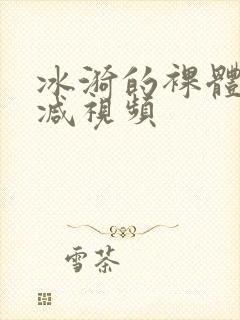 冰漪的裸體
减視頻
雪茶